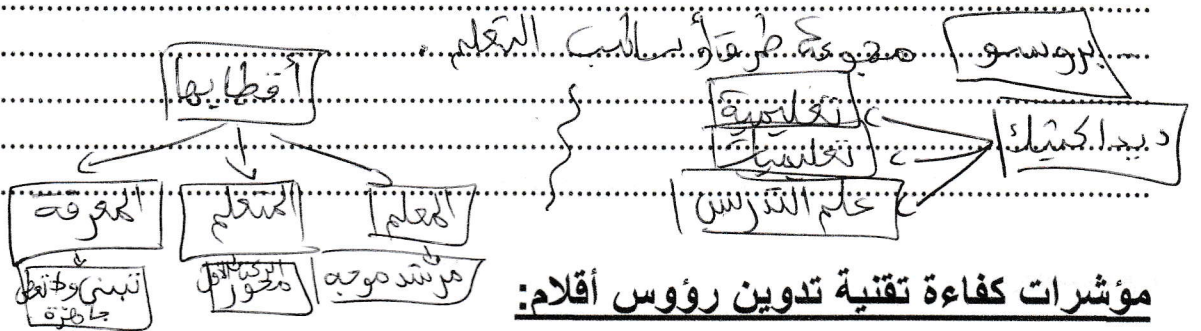 بروسو مجموعة طرق أساليب التعلم.
أقطابها
ديداكتيك
تعليمية
تعليميات
علم التدريس
المعلم
المتعلم
المعرفة
مرشد موجه
محور
تبنى ولا تعطى جاهزة
مؤشرات كفاءة تقنية تدوين رؤوس أقلام: